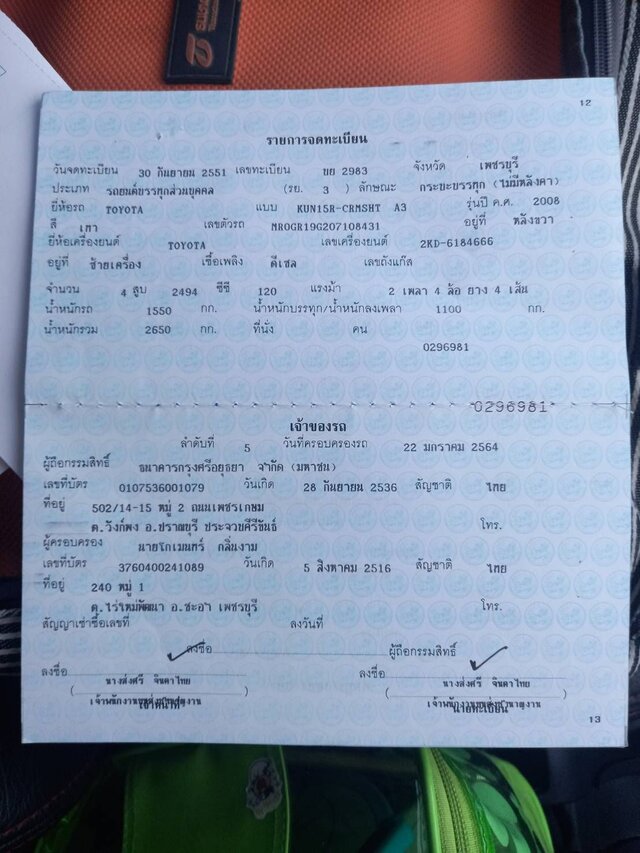 12
รายการจดทะเบียน
วันจดทะเบียน 30 กันยายน 2551 เลขทะเบียน บย 2983 จังหวัด เพชรบุรี
ประเภท รถยนต์บรรทุกส่วนบุคคล (รย. 3 ) ลักษณะ กระบะบรรทุก (ไม่มีหลังคา)
ยี่ห้อรถ TOYOTA แบบ KUN15R-CRMSHT A3 รุ่นปี ค.ศ. 2008
สี เทา เลขตัวรถ MR0GR19G207108431 อยู่ที่ หลังขวา
ยี่ห้อเครื่องยนต์ TOYOTA เลขเครื่องยนต์ 2KD-6184666
อยู่ที่ ซ้ายเครื่อง เชื้อเพลิง ดีเซล เลขถังแก๊ส
จำนวน 4 สูบ 2494 ซีซี 120 แรงม้า 2 เพลา 4 ล้อ ยาง 4 เส้น
น้ำหนักรถ 1550 กก. น้ำหนักบรรทุก/น้ำหนักลงเพลา 1100 กก.
น้ำหนักรวม 2650 กก. ที่นั่ง คน
0296981
0296981
เจ้าของรถ
ลำดับที่ 5 วันที่ครอบครองรถ 22 มกราคม 2564
ผู้ถือกรรมสิทธิ์ ธนาคารกรุงศรีอยุธยา จำกัด (มหาชน)
เลขที่บัตร 0107536001079 วันเกิด 28 กันยายน 2536 สัญชาติ ไทย
ที่อยู่ 502/14-15 หมู่ 2 ถนนเพชรเกษม
ต.วังก์พง อ.ปราณบุรี ประจวบคีรีขันธ์ โทร.
ผู้ครอบครอง กลิ่นงาม
เลขที่บัตร 3760400241089 วันเกิด 5 สิงหาคม 2516 สัญชาติ ไทย
ที่อยู่ 240 หมู่ 1
ต.ไร่ใหม่พัฒนา อ.ชะอำ เพชรบุรี โทร.
สัญญาเช่าซื้อเลขที่ ลงวันที่
ลงชื่อ ผู้ถือกรรมสิทธิ์
ลงชื่อ ลงชื่อ
นางส่งศรี จินดาไทย นางส่งศรี จินดาไทย
( ) ( )
นายทะเบียน
13